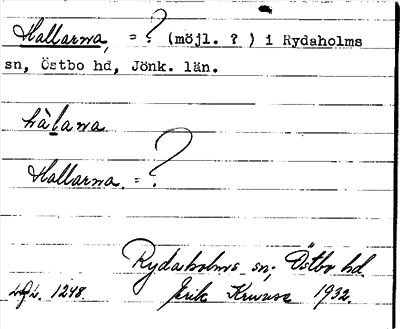 Hallarna, = ? (möjl. ? ) i Rydaholms
sn, Östbo hd, Jönk. län.
hàlana
Hallarna = ?
Rydaholms sn; Östbo hd.
1248. Erik Kruuse 1932.